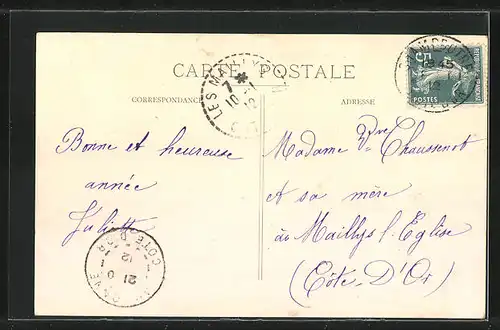 CARTE POSTALE
CORRESPONDANCE
ADRESSE
LES MAILLYS
7
10 12
5
POSTES
Bonne et heureuse
année
Juliette
Madame Vve Chaussenot
et sa mère
à Maillys l'Eglise
(Côte-D'Or)
COTE D'OR
12
21 0